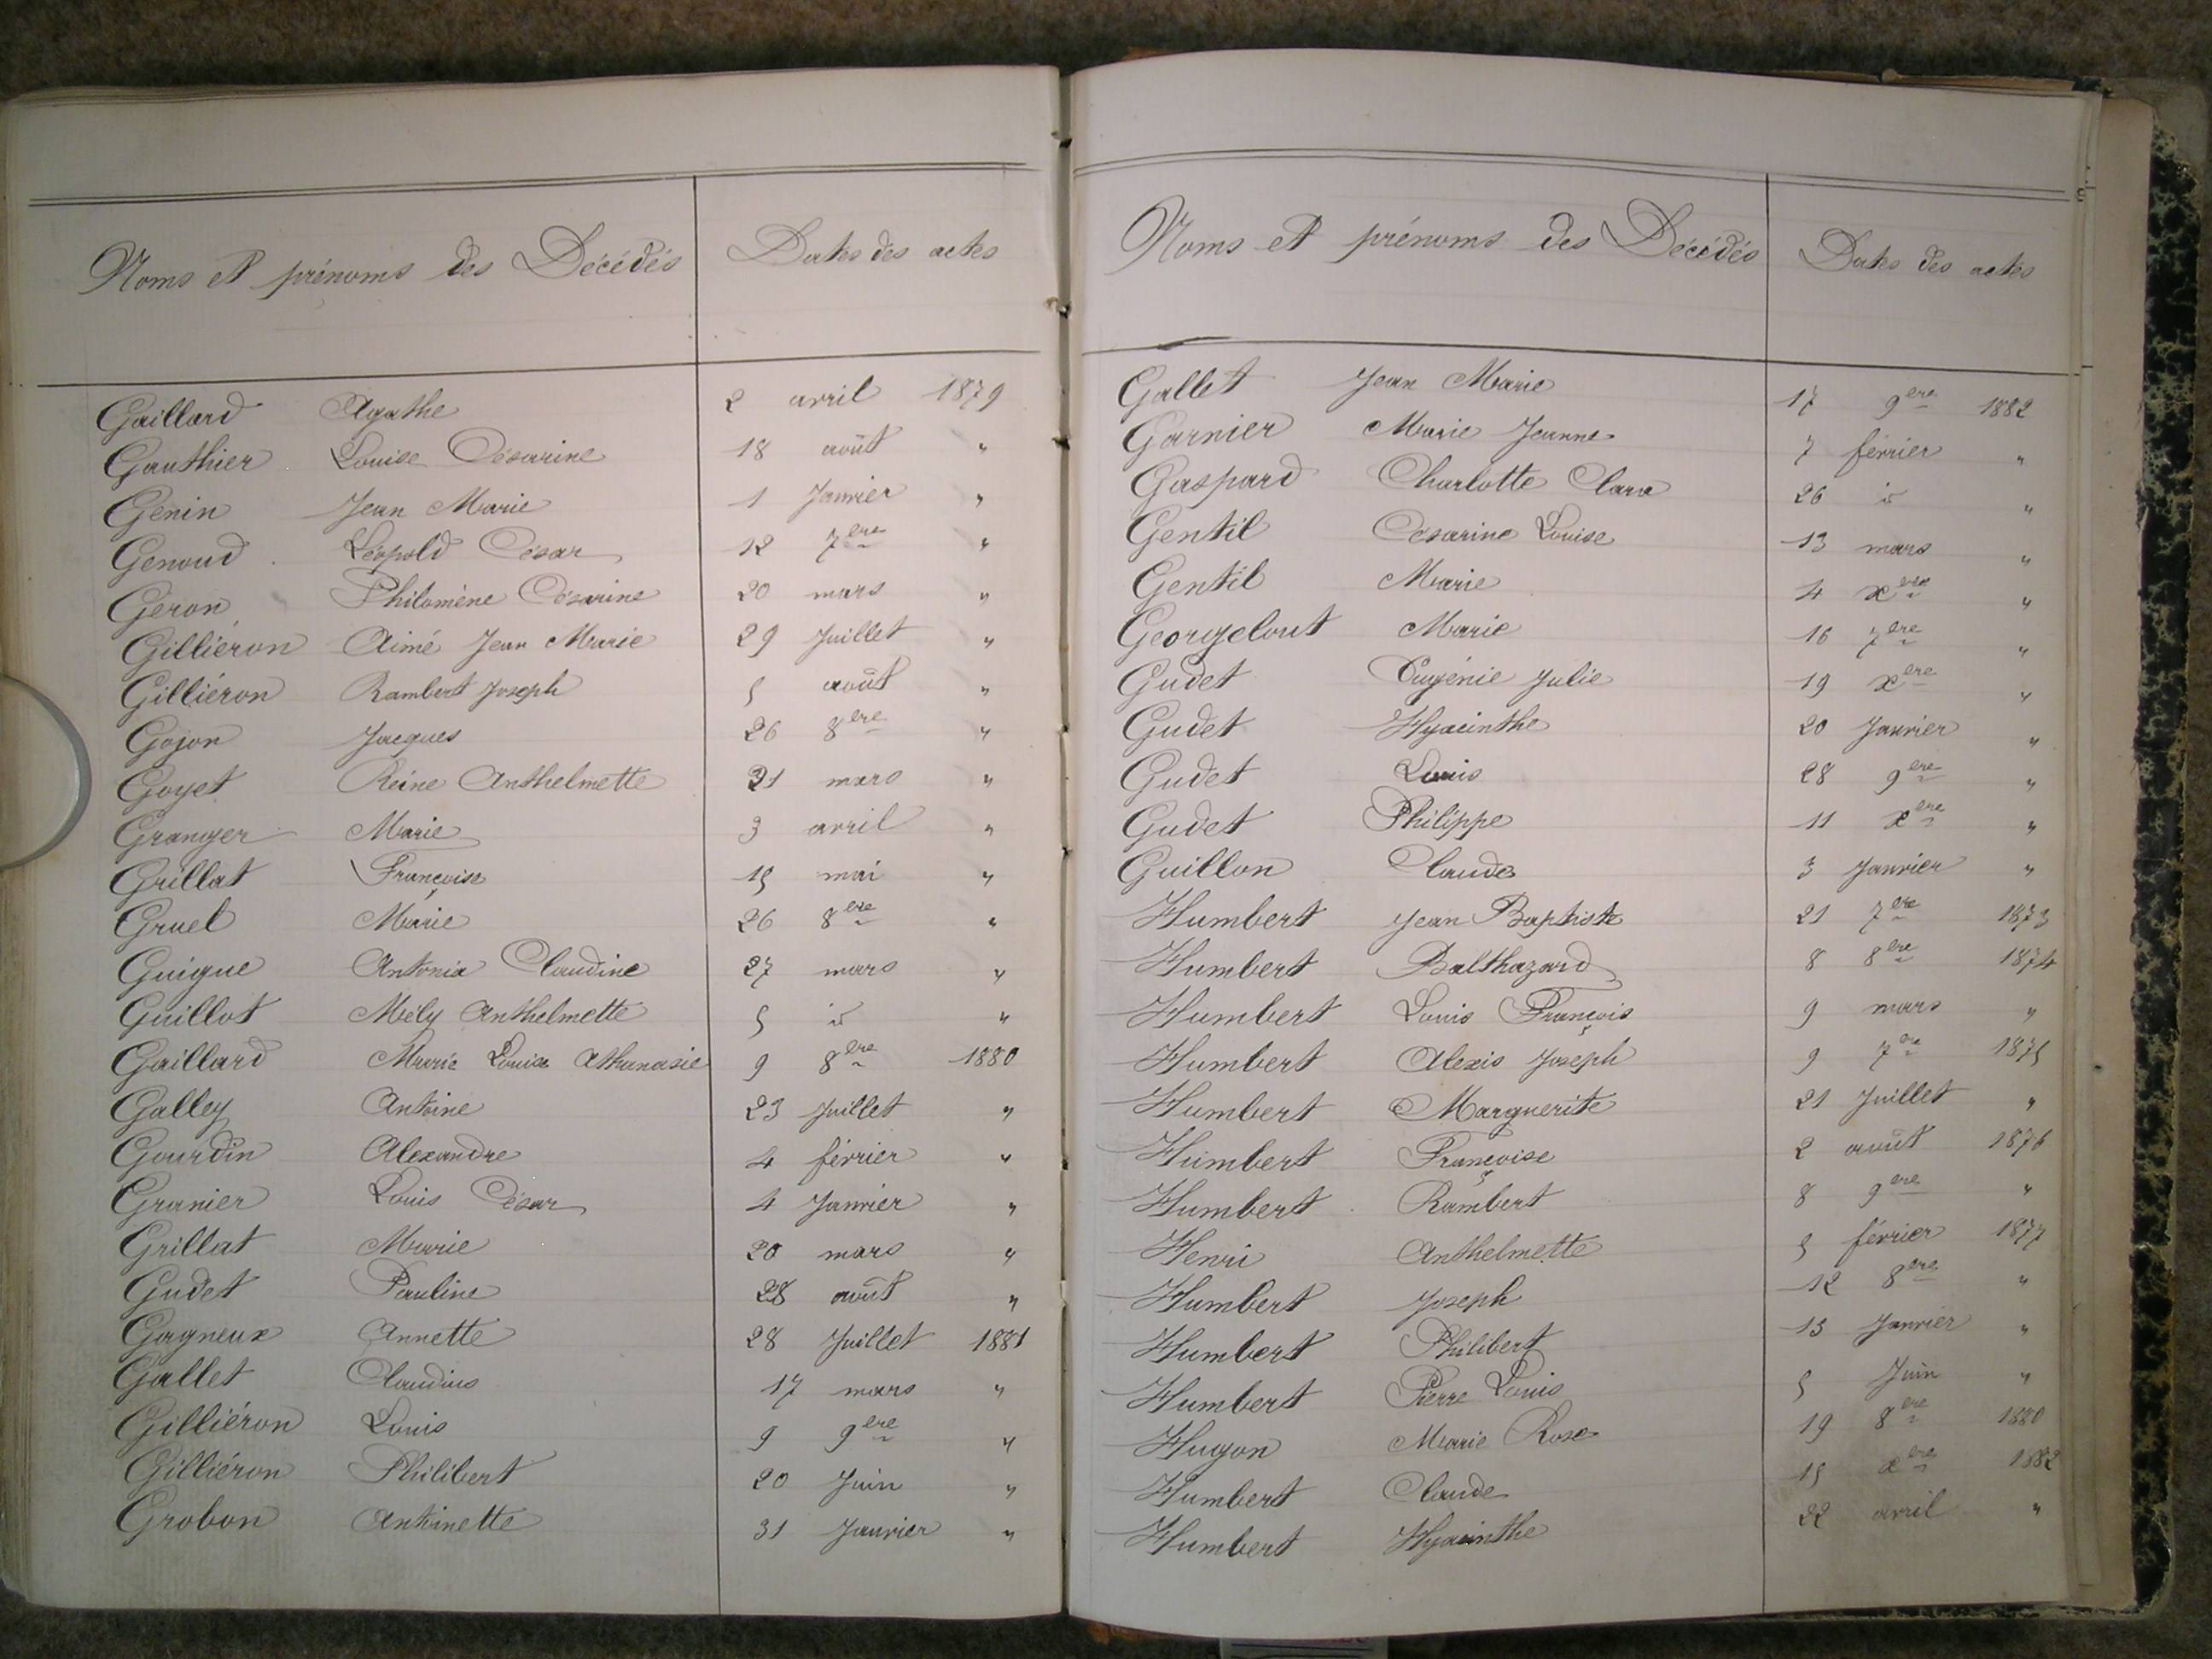 Noms et prénoms des Décédés Dates des actes
Gaillard Agathe 2 avril 1879
Gauthier Louise Césarine 18 août "
Genin Jean Marie 1 Janvier "
Genoud Léopold César 12 7bre "
Géron Philomène Césarine 20 mars "
Gilliéron Aimé Jean Marie 29 Juillet "
Gilliéron Rambert Joseph 5 août "
Gojon Jacques 26 8bre "
Goyet Reine Anthelmette 31 mars "
Granger Marie 3 avril "
Grillat Françoise 15 mai "
Gruel Marie 26 8bre "
Guigue Antonia Claudine 27 mars "
Guillot Mély Anthelmette 5 id "
Gaillard Marie Louise Athanasie 9 8bre 1880
Galley Antoine 23 Juillet "
Gourdin Alexandre 4 février "
Granier Louis César 4 Janvier "
Grillat Marie 20 mars "
Gudet Pauline 28 août "
Gagneux Annette 28 Juillet 1881
Gallet Claudius 17 mars "
Gilliéron Louis 9 9bre "
Gilliéron Philibert 20 Juin "
Grobon Antoinette 31 Janvier "
Noms et prénoms des Décédés Dates des actes
Gallet Jean Marie 17 9bre 1882
Garnier Marie Jeanne 7 février "
Gaspard Charlotte Clara 26 id "
Gentil Césarine Louise 13 mars "
Gentil Marie 4 xbre "
Georgelout Marie 16 7bre "
Gudet Eugénie Julie 19 xbre "
Gudet Hyacinthe 20 Janvier "
Gudet Louis 28 9bre "
Gudet Philippe 11 xbre "
Guillon Claude 3 Janvier "
Humbert Jean Baptiste 21 7bre 1873
Humbert Balthazard 8 8bre 1874
Humbert Louis François 9 mars "
Humbert Alexis Joseph 9 7bre 1875
Humbert Marguerite 21 Juillet "
Humbert Françoise 2 août 1876
Humbert Rambert 8 9bre "
Henri Anthelmette 5 février 1877
Humbert Joseph 12 8bre "
Humbert Philibert 13 Janvier "
Humbert Pierre Louis 5 Juin "
Hugon Marie Rose 19 8bre 1880
Humbert Claude 15 xbre 1882
Humbert Hyacinthe 22 avril "